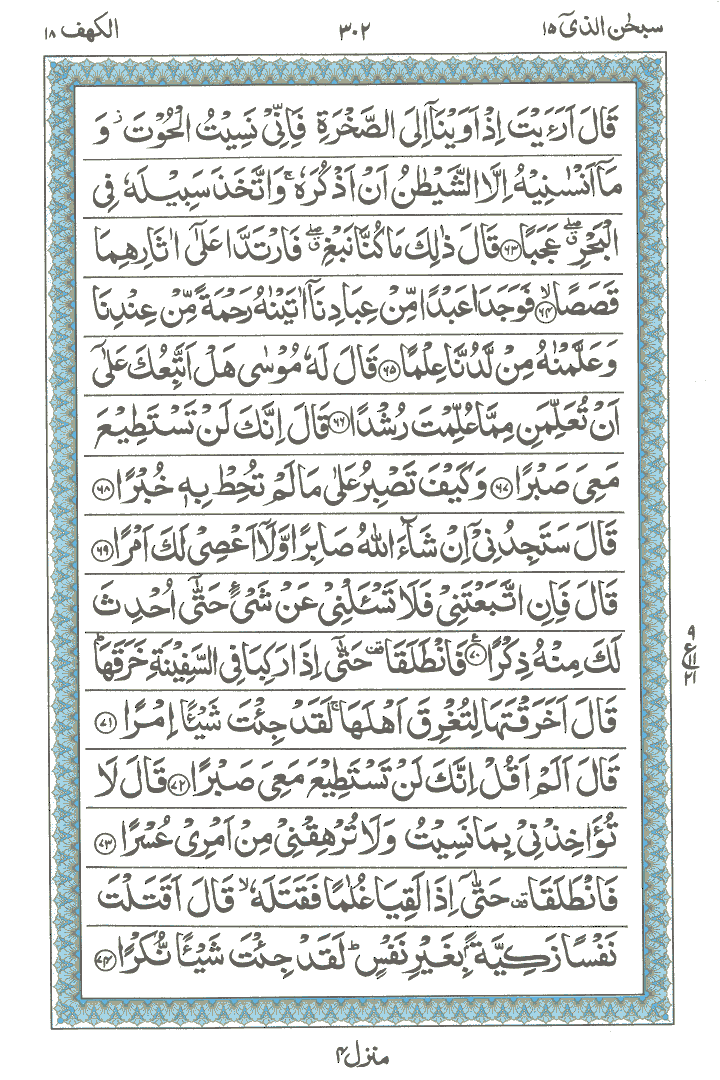 سبحٰن الذیۤ ۱۵ ۳۰۲ الكهف ۱۸
قَالَ اَرَءَیْتَ اِذْ اَوَیْنَاۤ اِلَى الصَّخْرَةِ فَاِنِّیْ نَسِیْتُ الْحُوْتَ ؗ وَ
مَاۤ اَنْسٰىنِیْهُ اِلَّا الشَّیْطٰنُ اَنْ اَذْكُرَهٗ ۚ وَاتَّخَذَ سَبِیْلَهٗ فِی
الْبَحْرِ ۖۗ عَجَبًا ﴿۶۳﴾ قَالَ ذٰلِكَ مَا كُنَّا نَبْغِ ۖۗ فَارْتَدَّا عَلٰۤى اٰثَارِهِمَا
قَصَصًا ۙ﴿۶۴﴾ فَوَجَدَا عَبْدًا مِّنْ عِبَادِنَاۤ اٰتَیْنٰهُ رَحْمَةً مِّنْ عِنْدِنَا
وَعَلَّمْنٰهُ مِنْ لَّدُنَّا عِلْمًا ﴿۶۵﴾ قَالَ لَهٗ مُوْسٰى هَلْ اَتَّبِعُكَ عَلٰۤى
اَنْ تُعَلِّمَنِ مِمَّا عُلِّمْتَ رُشْدًا ﴿۶۶﴾ قَالَ اِنَّكَ لَنْ تَسْتَطِیْعَ
مَعِیَ صَبْرًا ﴿۶۷﴾ وَكَیْفَ تَصْبِرُ عَلٰى مَا لَمْ تُحِطْ بِهٖ خُبْرًا ﴿۶۸﴾
قَالَ سَتَجِدُنِیْۤ اِنْ شَآءَ اللّٰهُ صَابِرًا وَّلَاۤ اَعْصِیْ لَكَ اَمْرًا ﴿۶۹﴾
قَالَ فَاِنِ اتَّبَعْتَنِیْ فَلَا تَسْـَٔلْنِیْ عَنْ شَیْءٍ حَتّٰۤى اُحْدِثَ
لَكَ مِنْهُ ذِكْرًا ﴿۷۰﴾ فَانْطَلَقَا ۥ حَتّٰۤى اِذَا رَكِبَا فِی السَّفِیْنَةِ خَرَقَهَا ؕ
۹ ع ۱۱ ۲۱
قَالَ اَخَرَقْتَهَا لِتُغْرِقَ اَهْلَهَا ۚ لَقَدْ جِئْتَ شَیْـًٔا اِمْرًا ﴿۷۱﴾
قَالَ اَلَمْ اَقُلْ اِنَّكَ لَنْ تَسْتَطِیْعَ مَعِیَ صَبْرًا ﴿۷۲﴾ قَالَ لَا
تُؤَاخِذْنِیْ بِمَا نَسِیْتُ وَلَا تُرْهِقْنِیْ مِنْ اَمْرِیْ عُسْرًا ﴿۷۳﴾
فَانْطَلَقَا ۥ حَتّٰۤى اِذَا لَقِیَا غُلٰمًا فَقَتَلَهٗ ۙ قَالَ اَقَتَلْتَ
نَفْسًا زَكِیَّةًۢ بِغَیْرِ نَفْسٍ ؕ لَقَدْ جِئْتَ شَیْـًٔا نُّكْرًا ﴿۷۴﴾
منزل ۴